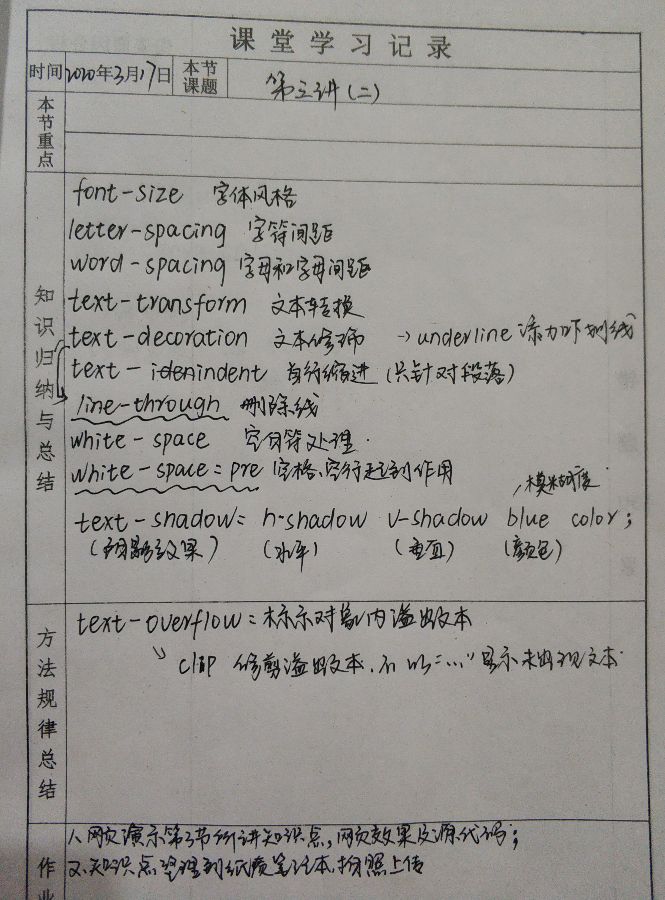 课堂学习记录
时间 2020年3月17日 本节课题 第三讲(二)
本节重点
知识归纳与总结
font-size 字体风格
letter-spacing 字符间距
word-spacing 字母和字母间距
text-transform 文本转换
text-decoration 文本修饰 → underline 添加下划线
text-indent 首行缩进 (只针对段落)
line-through 删除线
white-space 空白符处理.
white-space = pre 空格、空行起到作用
模糊度
text-shadow = h-shadow v-shadow blue color;
(阴影效果) (水平) (垂直) (颜色)
方法规律总结
text-overflow = 标示对象内溢出文本
clip 修剪溢出文本,不以"..."显示未出现文本.
作业
1、网页演示第3节所讲知识点,网页效果及源代码;
2、知识点整理到纸质笔记本,拍照上传